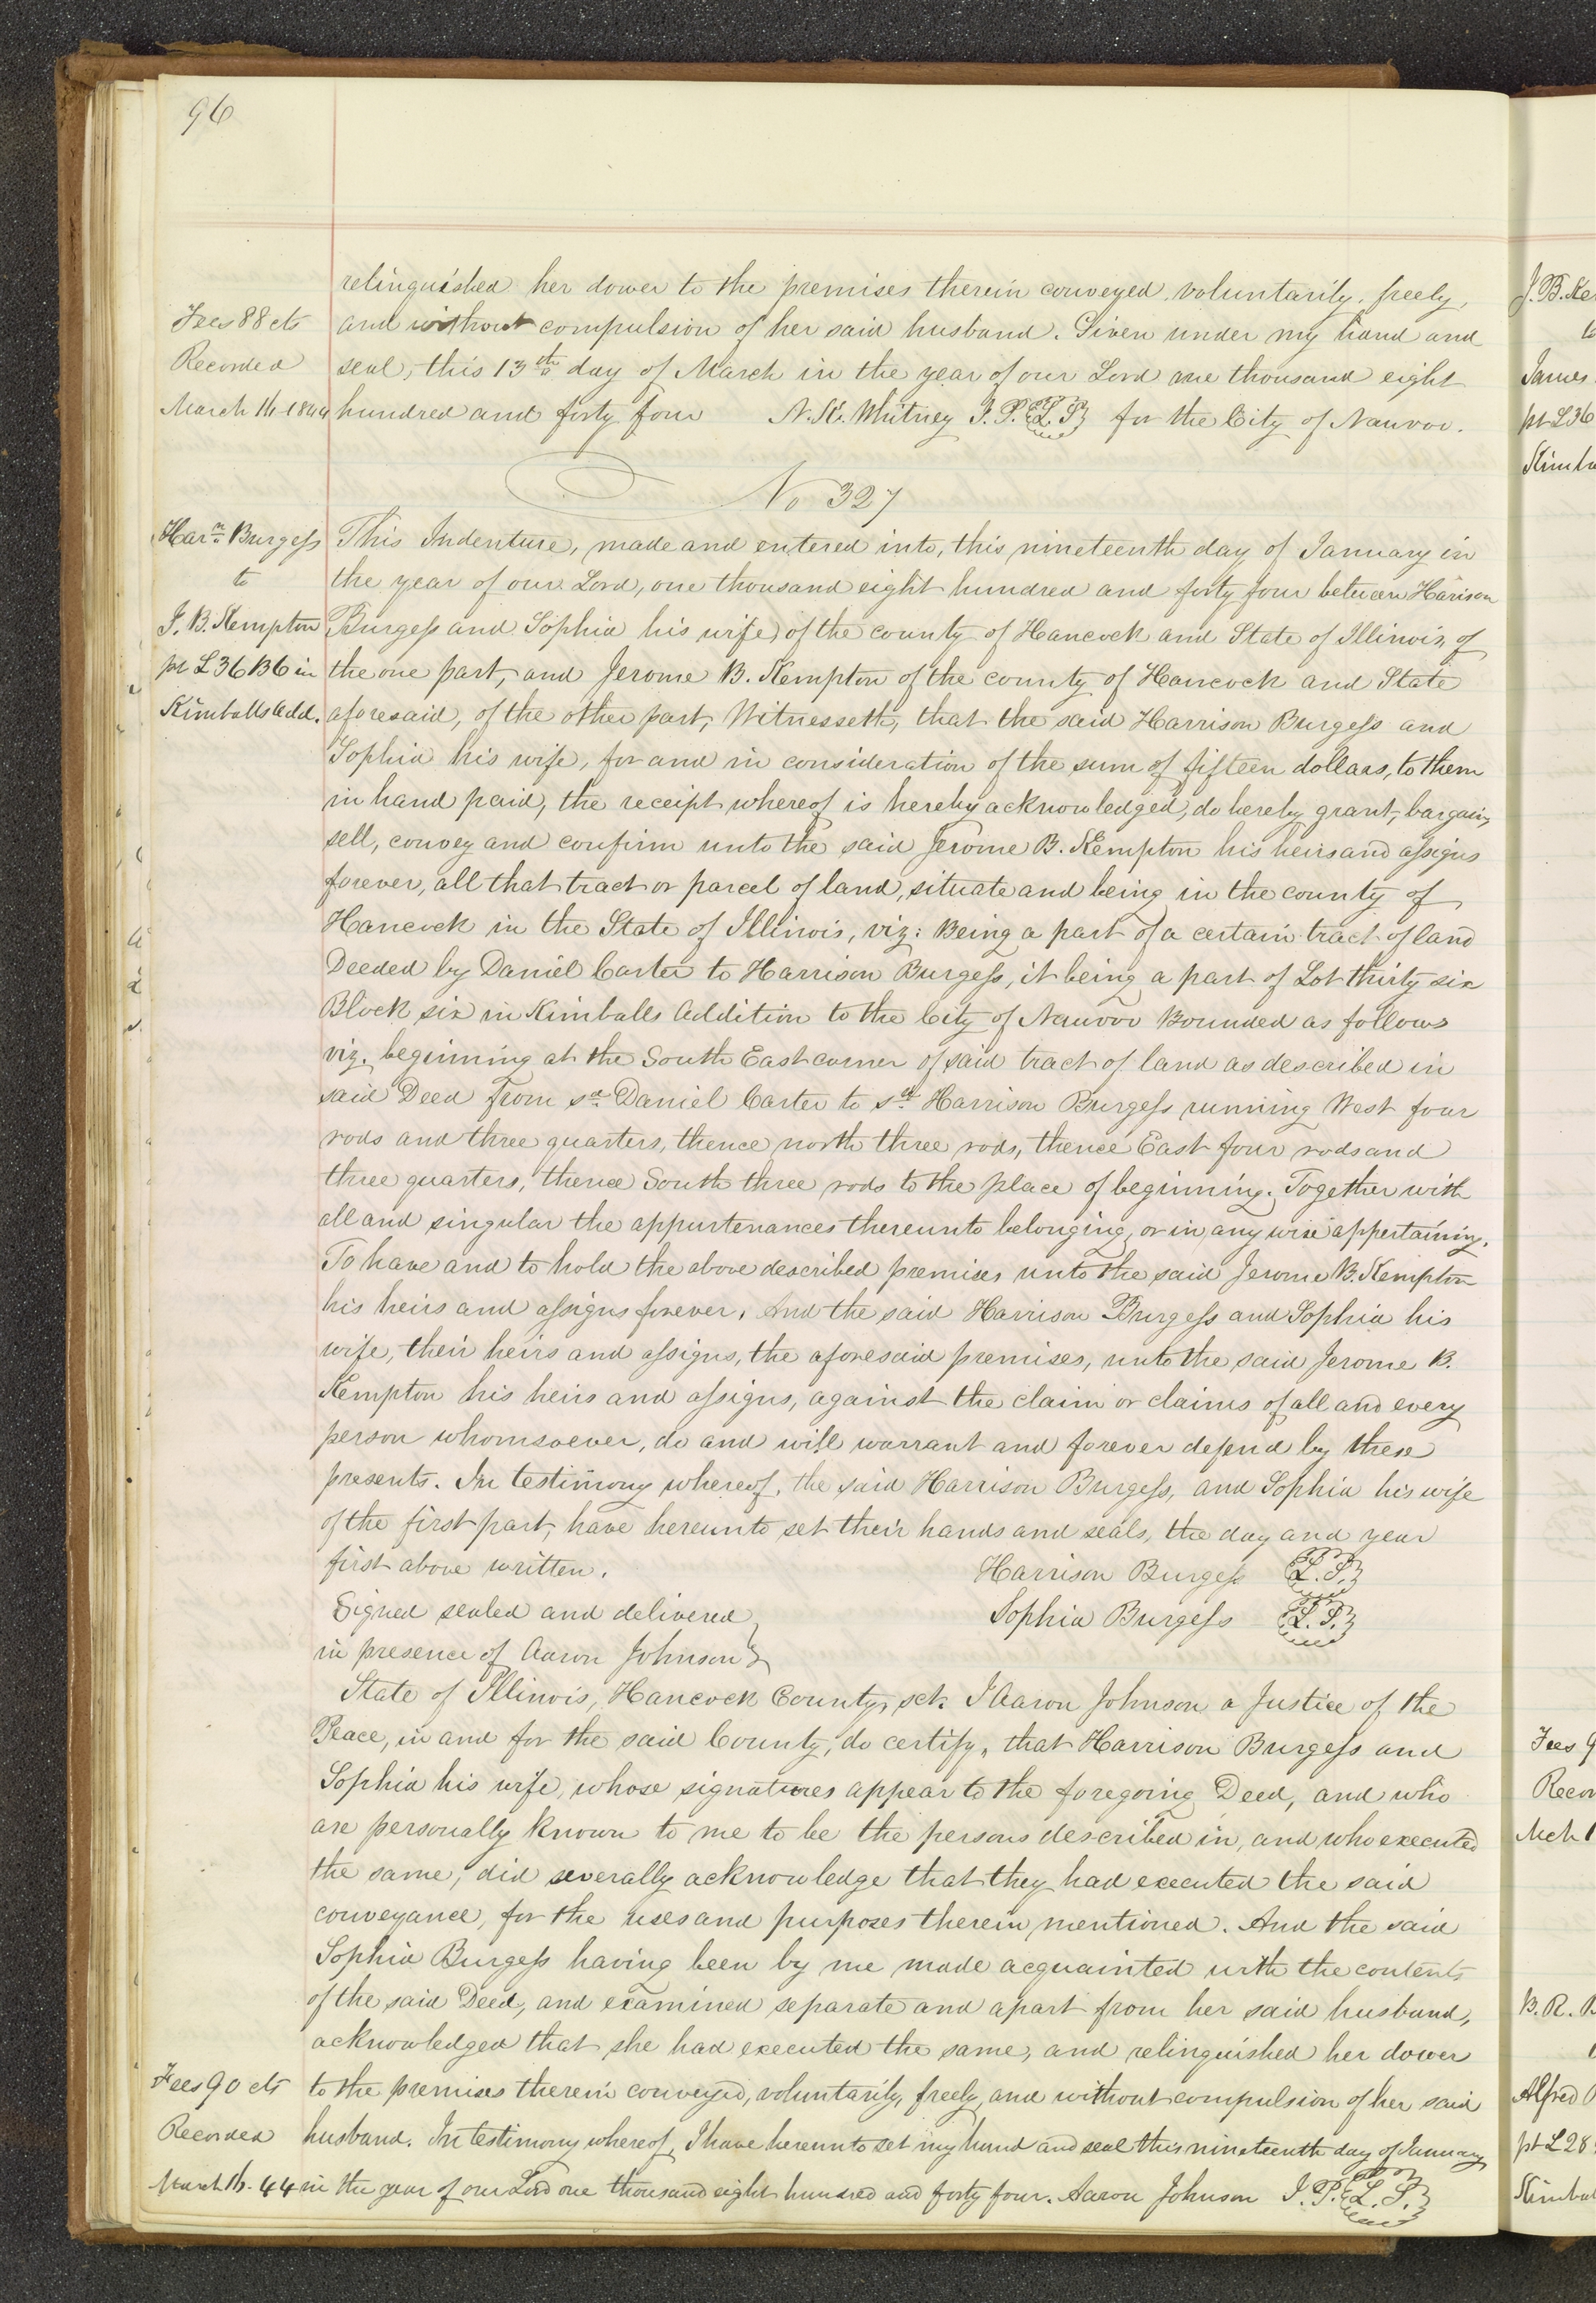 96
relinquished her dower to the premises therein conveyed, voluntarily, freely,
Fees 88 cts
and without compulsion of her said husband. Given under my hand and
Recorded
seal, this 13th day of March in the year of our Lord one thousand eight
March 16 1844
hundred and forty four N. K. Whitney J. P. L. S. for the City of Nauvoo.
No 327
Harn Burgess
This Indenture, made and entered into, this nineteenth day of January in
to
the year of our Lord, one thousand eight hundred and forty four between Harison
J. B. Kempton
Burgess and Sophia his wife, of the county of Hancock and State of Illinois, of
pt L 36 B 6 in
the one part, and Jerome B. Kempton of the county of Hancock and State
Kimballs Add.
aforesaid, of the other part, Witnesseth, that the said Harrison Burgess and
Sophia his wife, for and in consideration of the sum of fifteen dollars, to them
in hand paid, the receipt whereof is hereby acknowledged, do hereby grant, bargain,
sell, convey and confirm unto the said Jerome B. Kempton his heirs and assigns
forever, all that tract or parcel of land, situate and being in the county of
Hancock in the State of Illinois, viz: Being a part of a certain tract of land
Deeded by Daniel Carter to Harrison Burgess, it being a part of Lot thirty six
Block six in Kimballs Addition to the City of Nauvoo Bounded as follows
viz. beginning at the South East corner of said tract of land as described in
said Deed from sd Daniel Carter to sd Harrison Burgess running West four
rods and three quarters, thence north three rods, thence East four rods and
three quarters, thence South three rods to the place of beginning. Together with
all and singular the appurtenances thereunto belonging, or in any wise appertaining.
To have and to hold the above described premises unto the said Jerome B. Kempton
his heirs and assigns forever. And the said Harrison Burgess and Sophia his
wife, their heirs and assigns, the aforesaid premises, unto the said Jerome B.
Kempton his heirs and assigns, against the claim or claims of all and every
person whomsoever, do and will warrant and forever defend by these
presents. In testimony whereof, the said Harrison Burgess, and Sophia his wife
of the first part, have hereunto set their hands and seals, the day and year
first above written. Harrison Burgess L. S.
Signed sealed and delivered Sophia Burgess L. S.
in presence of Aaron Johnson
State of Illinois, Hancock County, sct. I Aaron Johnson a Justice of the
Peace, in and for the said County, do certify, that Harrison Burgess and
Sophia his wife, whose signatures appear to the foregoing Deed, and who
are personally known to me to be the persons described in, and who executed
the same, did severally acknowledge that they had executed the said
conveyance, for the uses and purposes therein mentioned. And the said
Sophia Burgess having been by me made acquainted with the contents
of the said Deed, and examined separate and apart from her said husband,
acknowledged that she had executed the same, and relinquished her dower
Fees 90 cts
to the premises therein conveyed, voluntarily, freely, and without compulsion of her said
Recorded
husband. In testimony whereof, I have hereunto set my hand and seal this nineteenth day of January
March 16. 44
in the year of our Lord one thousand eight hundred and forty four. Aaron Johnson J. P. L. S.
J. B. Ke
James
pt L 36
Kimba
Fees 9
Recor
Mch 1
B. R. B
Alfred
pt L 28
Kimbal